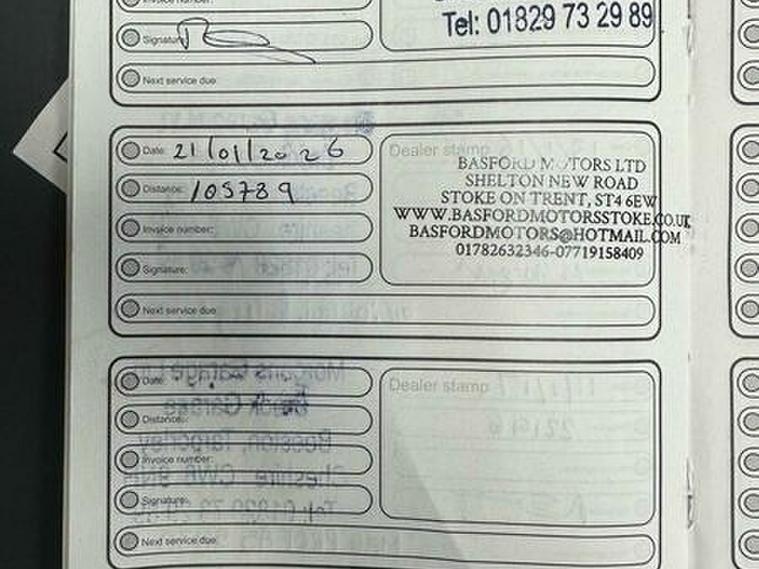 Invoice number:
Tel: 01829 73 29 89
Signature:
Next service due:
Date: 21/01/2026
Distance: 105789
Invoice number:
Signature:
Next service due:
Dealer stamp
BASFORD MOTORS LTD
SHELTON NEW ROAD
STOKE ON TRENT, ST4 6EW
WWW.BASFORDMOTORSSTOKE.CO.UK
BASFORDMOTORS@HOTMAIL.COM
01782632346-07719158409
Date:
Distance:
Invoice number:
Signature:
Next service due:
Dealer stamp